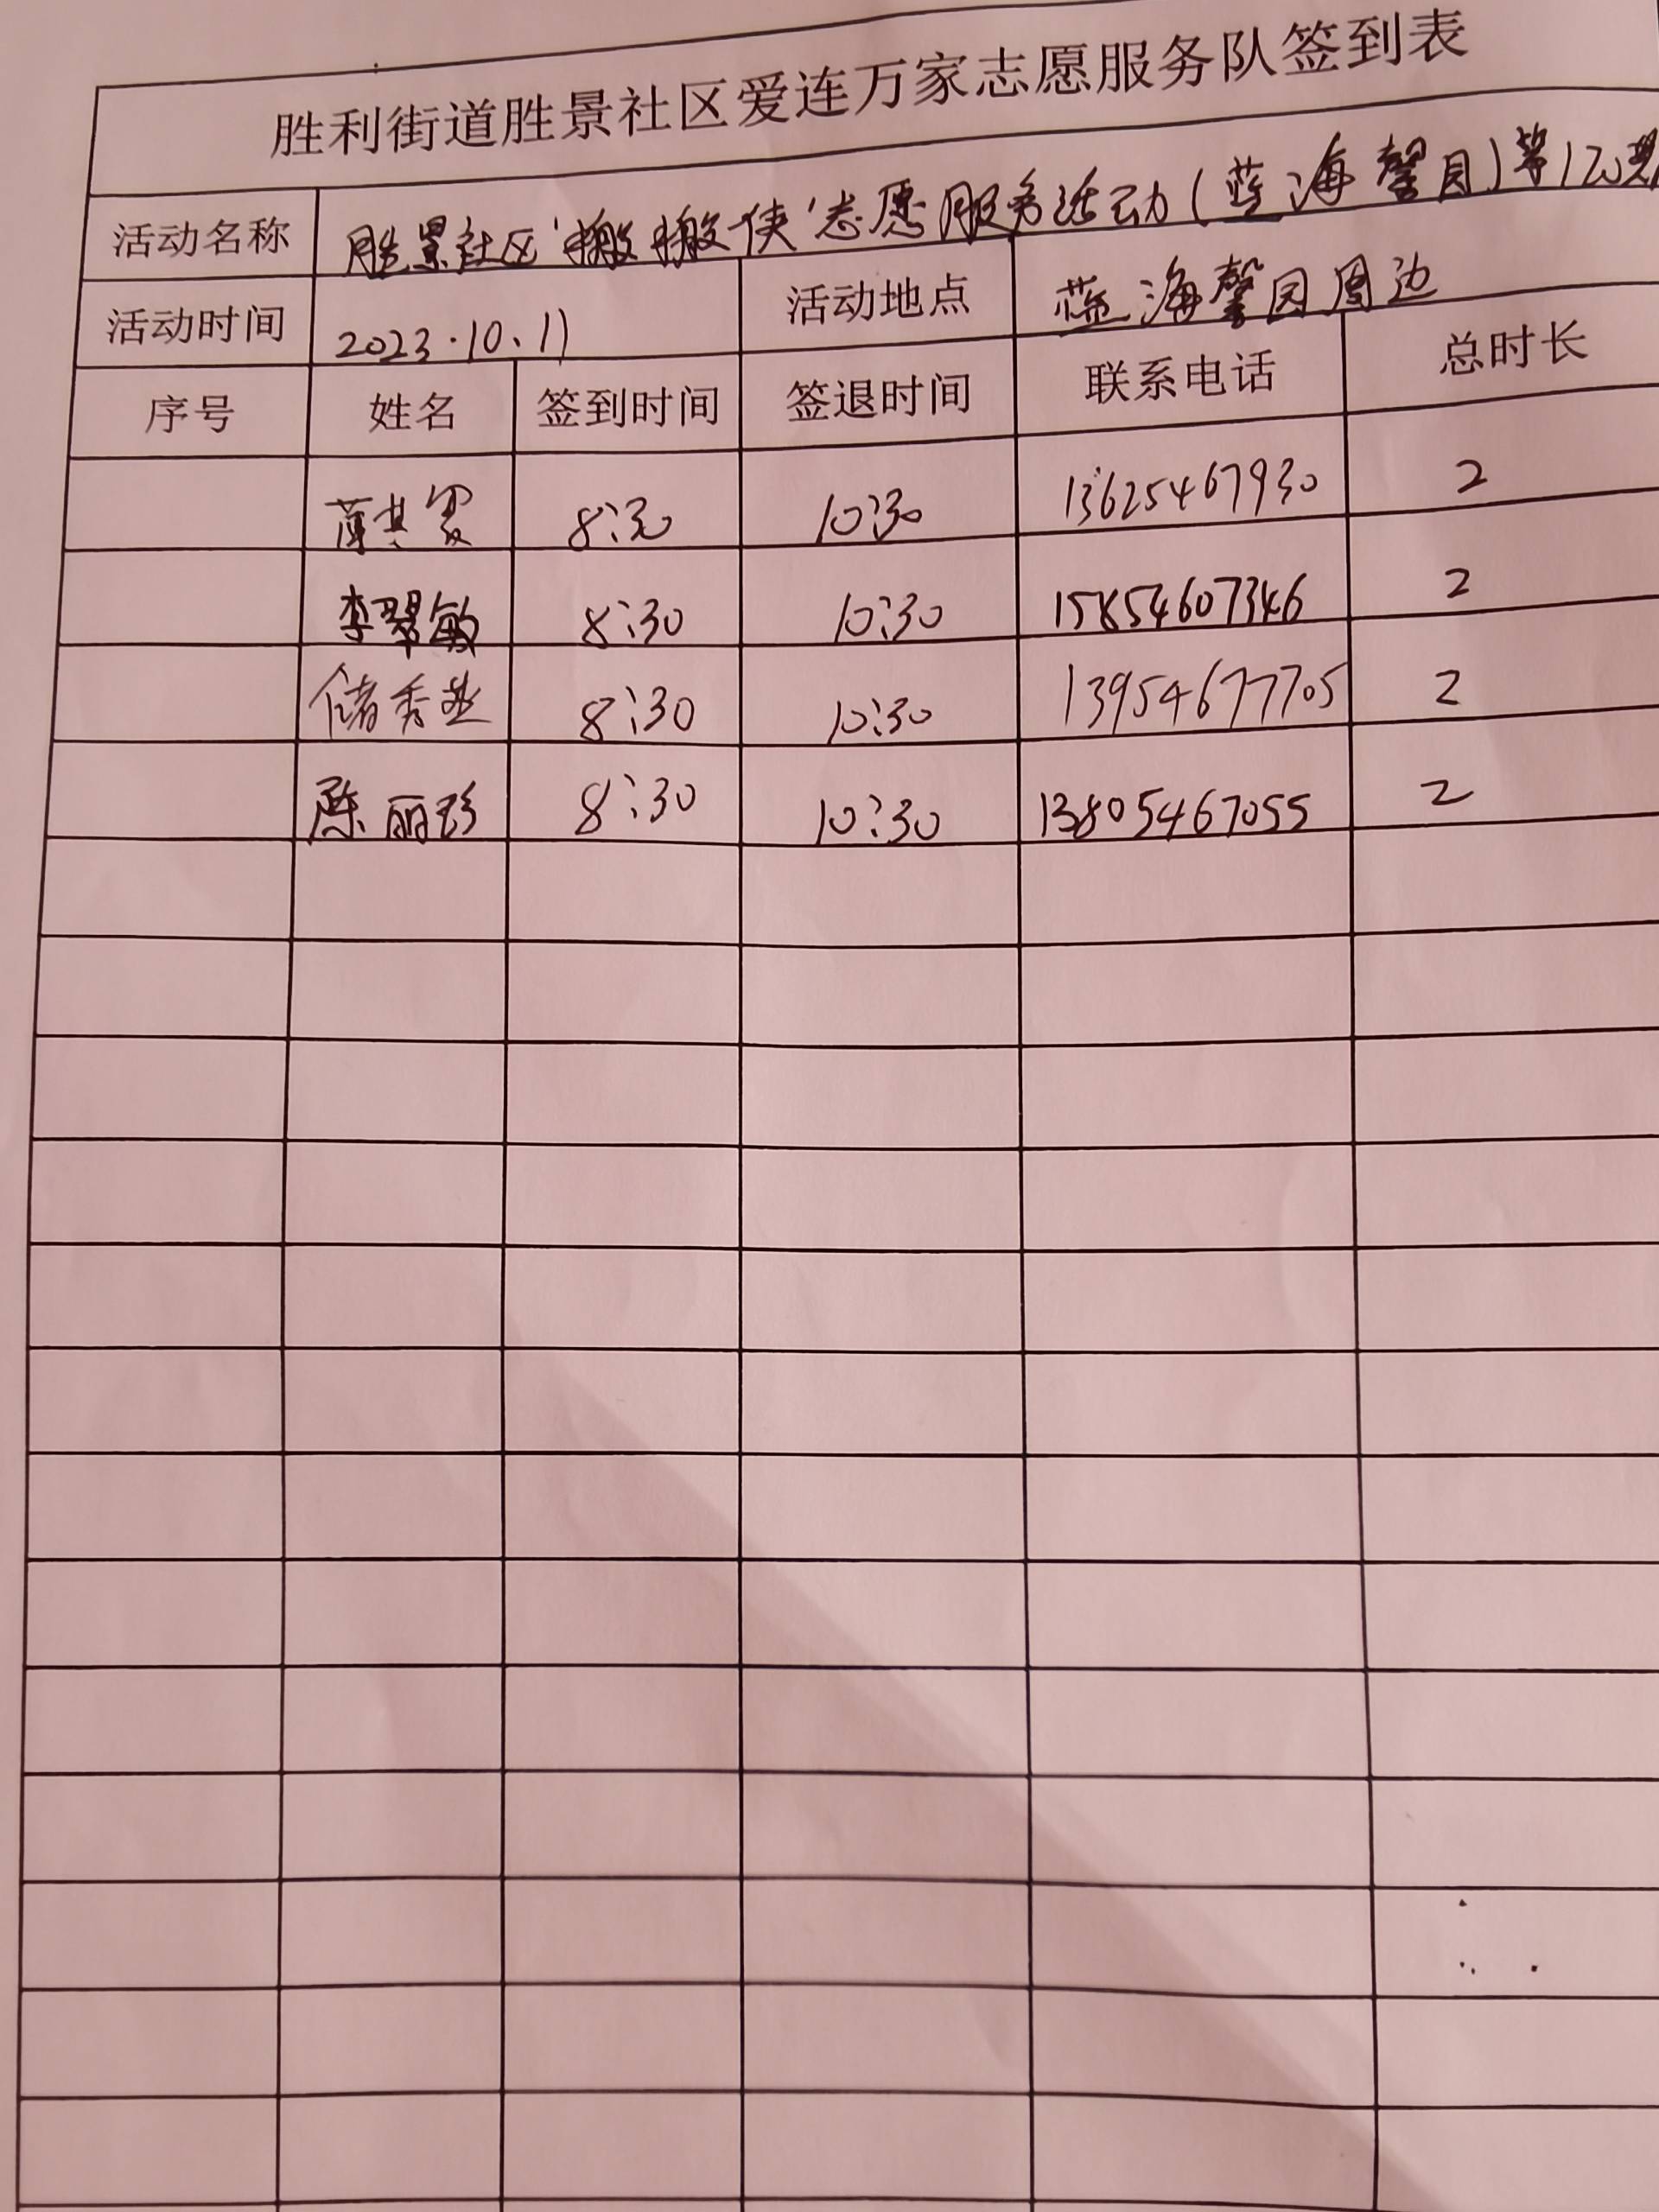 胜利街道胜景社区爱连万家志愿服务队签到表
活动名称 胜景社区'搬搬侠'志愿服务活动(蓝海馨园)第120期
活动时间 2023.10.11 活动地点 蓝海馨园周边
序号 姓名 签到时间 签退时间 联系电话 总时长
薄其 8:30 10:30 13625467930 2
李翠敏 8:30 10:30 15854607346 2
储秀燕 8:30 10:30 13954677705 2
陈丽珍 8:30 10:30 13805467055 2